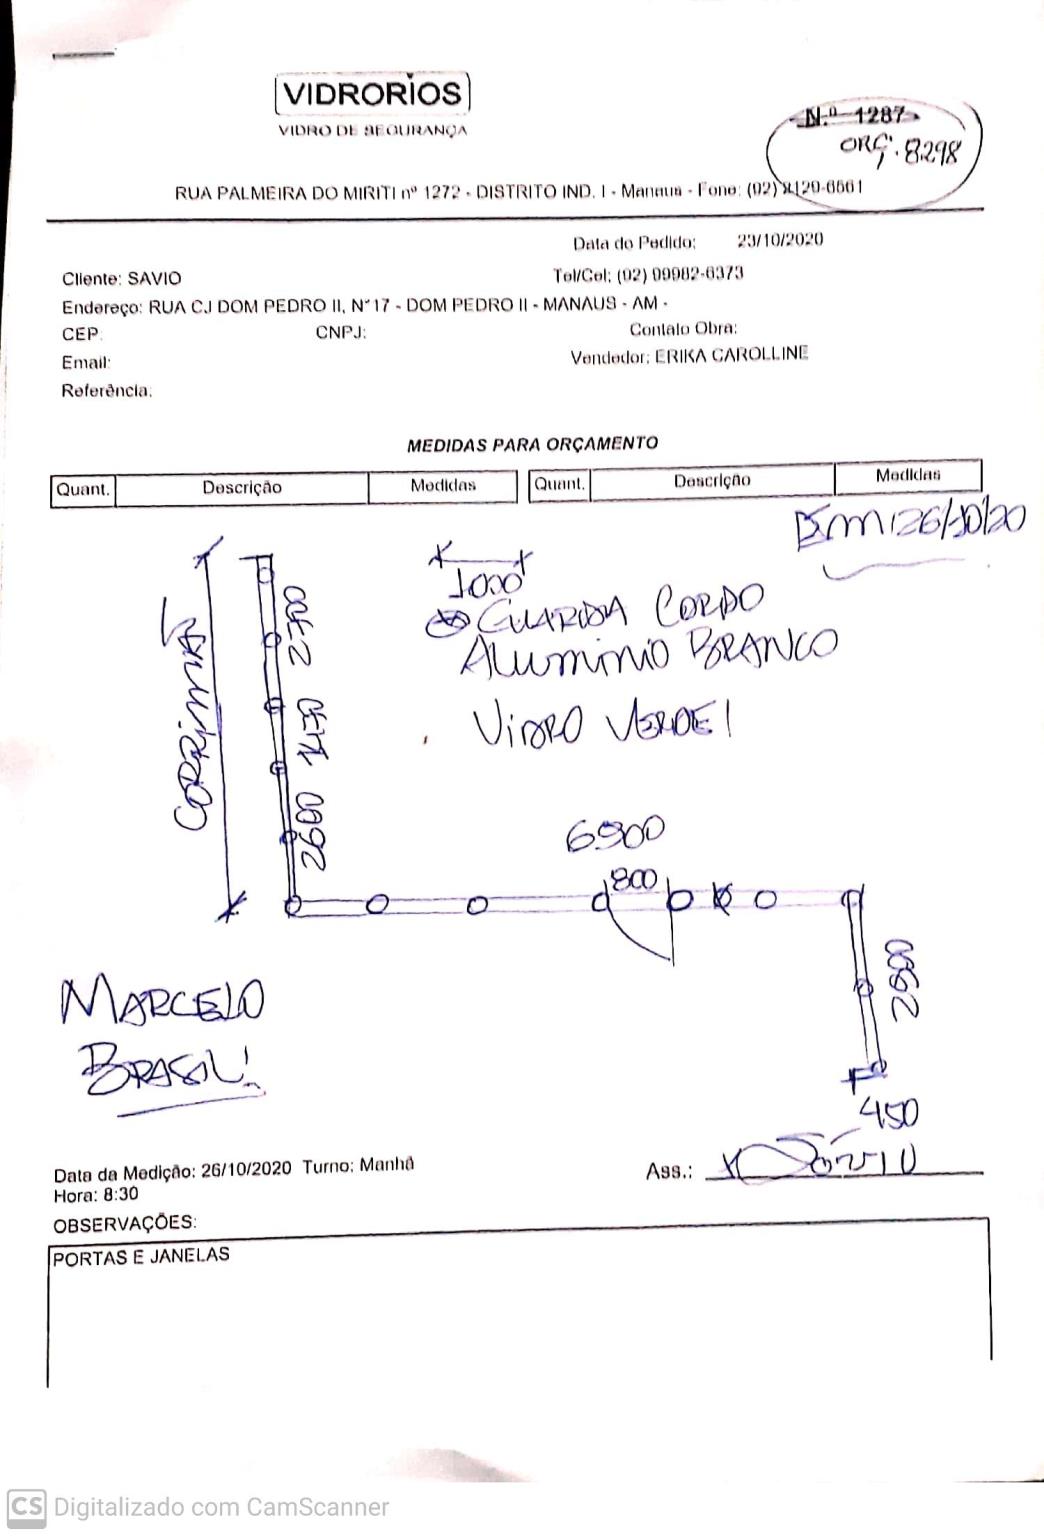 VIDRORIOS
VIDRO DE SEGURANÇA
N.º 1287
ORÇ. 8298
RUA PALMEIRA DO MIRITI nº 1272 - DISTRITO IND. I - Manaus - Fone: (92) 2129-6661
Data do Pedido: 23/10/2020
Cliente: SAVIO
Tel/Cel: (92) 99982-6373
Endereço: RUA CJ DOM PEDRO II, N°17 - DOM PEDRO II - MANAUS - AM -
CEP: CNPJ: Contato Obra:
Email: Vendedor: ERIKA CAROLLINE
Referência:
MEDIDAS PARA ORÇAMENTO
Quant. Descrição Medidas Quant. Descrição Medidas
26/10/20
1000
GUARDA CORPO
ALUMINIO BRANCO
VIDRO VERDE!
CORRIMÃO
2700
2600
6900
800
450
MARCELO
BRASIL!
Data da Medição: 26/10/2020 Turno: Manhã
Hora: 8:30
Ass.: X Sávio
OBSERVAÇÕES:
PORTAS E JANELAS
CS Digitalizado com CamScanner